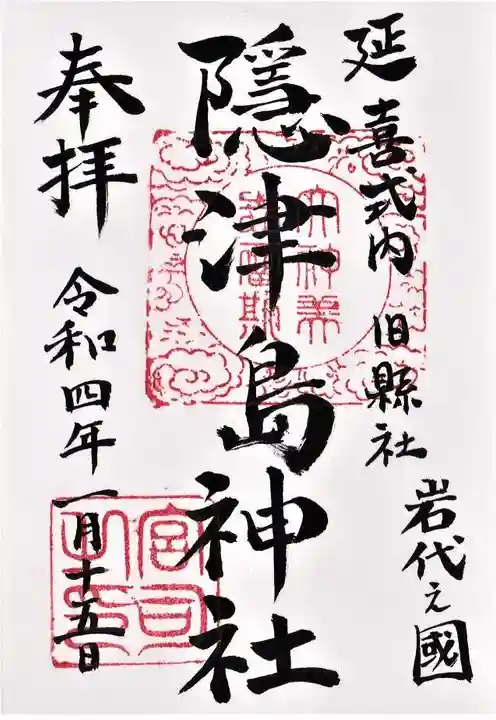 延喜式内 旧縣社
岩代之國
隱津島神社
奉拝
令和四年一月十五日
宮司之印